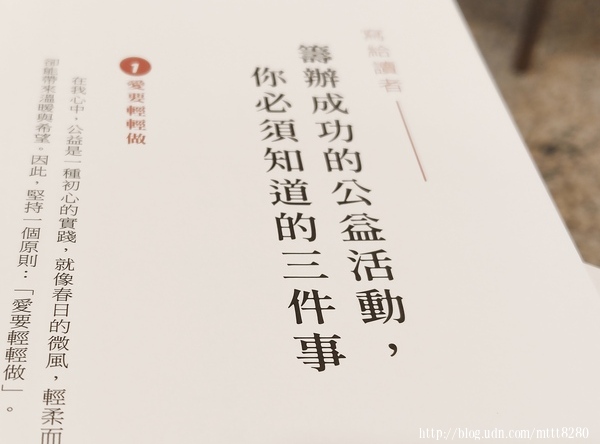 寫給讀者
籌辦成功的公益活動，
你必須知道的三件事
1 愛要輕輕做
在我心中，公益是一種初心的實踐，就像春日的微風，輕柔而
卻能帶來溫暖與希望。因此，堅持一個原則：「愛要輕輕做」。
http://blog.udn.com/mttt8280